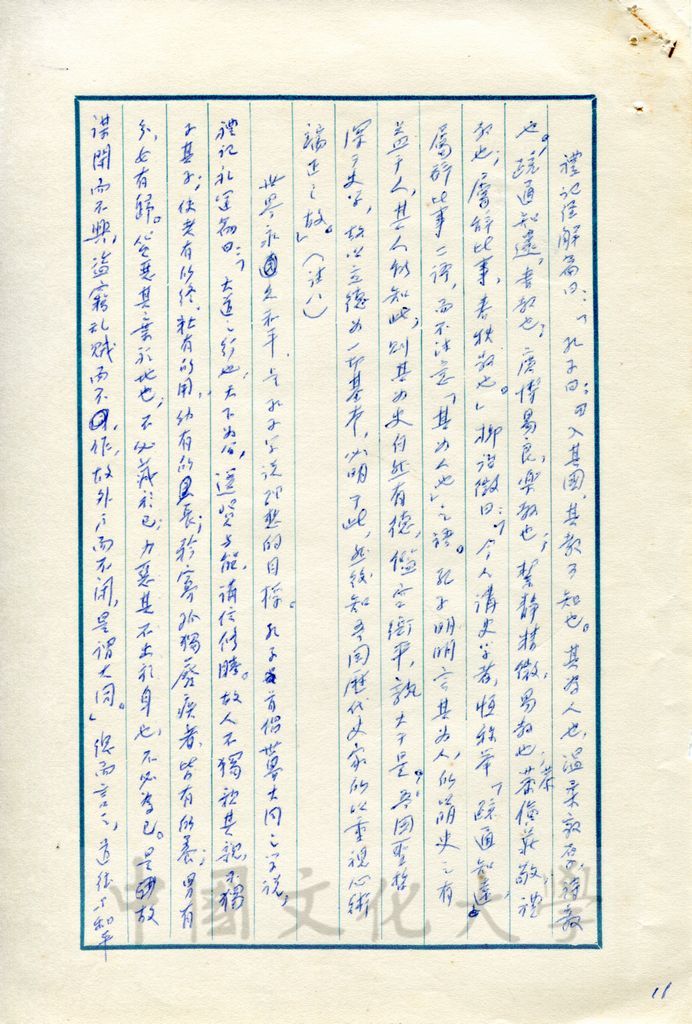 禮記經解篇曰：「孔子曰：『入其國，其教可知也。其為人也，溫柔敦厚，詩教
也；疏通知遠，書教也；廣博易良，樂教也；絜靜精微，易教也；恭儉莊敬，禮
教也；屬辭比事，春秋教也」柳詒徵曰：「今人講史學者，恆稱舉「疏通知遠
屬辭比事二語，而不注意「其為人也」之語。孔子明明言其為人，所以明史之有
益于人，其人能知此，則其為史自然有德，鑑空衡平，孰大于是。吾國聖哲
深于史學，故以立德為一切基本，必明乎此，然後知吾國歷代史家所以重視心術
端正之故。」（註八）
世界永久和平，是孔子學說理想的目標。孔子首倡世界大同之學說，
禮記禮運篇曰：「大道之行也，天下為公，選賢與能，講信修睦。故人不獨親其親，不獨
子其子；使老有所終，壯有所用，幼有所長；矜寡孤獨廢疾者，皆有所養；男有
分，女有歸。貨惡其棄於地也，不必藏於己；力惡其不出於身也，不必為己。是故
謀閉而不興，盜竊亂賊而不作，故外戶而不閉，是謂大同。」總而言之，道德與和平
中國文化大學
11